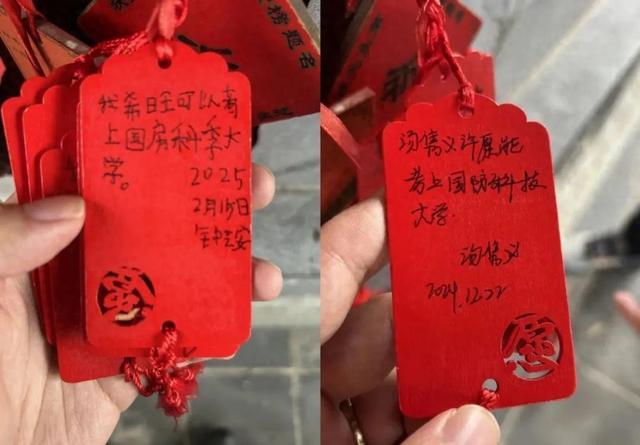 我希旺可以考
上国房科季大
学。
2025
2月15日
榜题名
汤儁义许愿能
考上国防科技
大学.
汤儁义
2024.12.22
愿